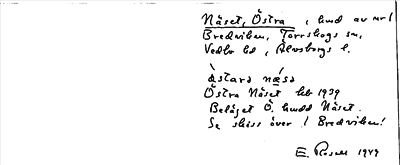 Näset, Östra, hmd av nr 1
Bredviken, Torrskogs sn,
Vedbo hd, Älvsborgs l.
àstərə næ̀sə
Östra Näset heb 1939
Beläget Ö. hmd Näset.
Se skiss över 1 Bredviken!
E. Rosell 1949